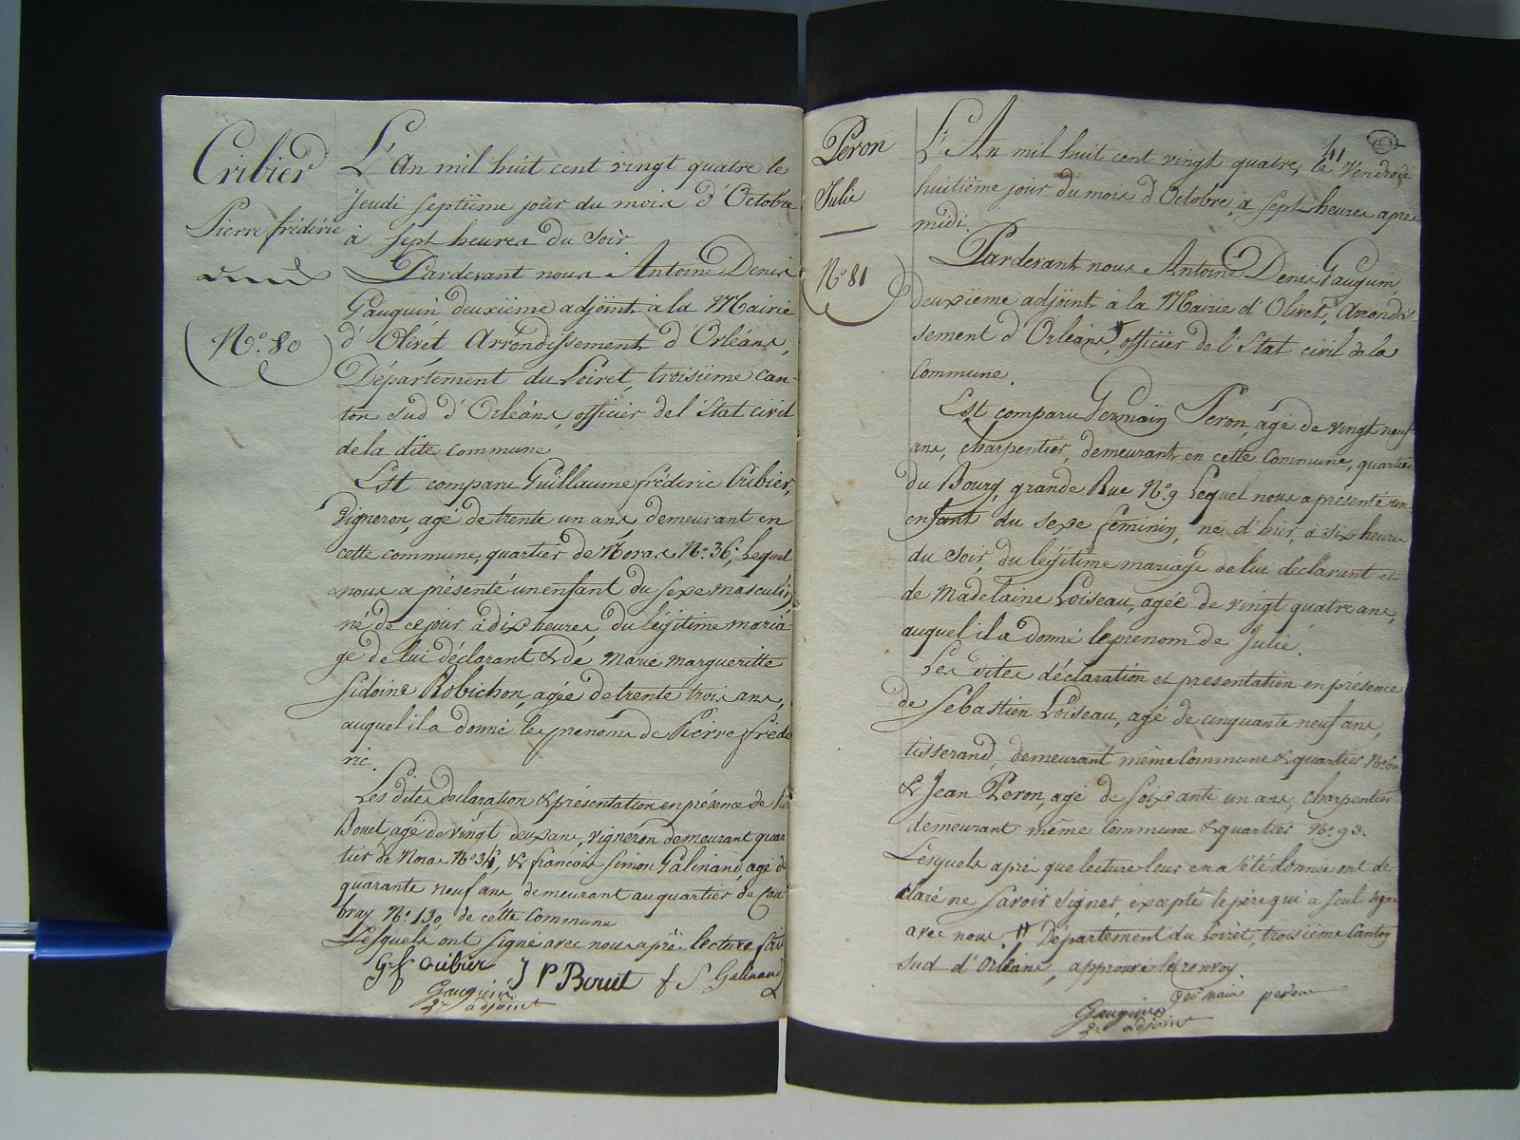 Cribier
Pierre frédéric
N.º 80
L'An mil huit cent vingt quatre le
jeudi septiême jour du mois d'Octobre
à sept heures du soir
Pardevant nous Antoine Denis
Gauguin deuxiême adjoint à la Mairie
d'Olivet Arrondissement d'Orléans,
Département du Loiret, troisiême can-
ton sud d'Orléans, officier de l'Etat civil
de la dite commune
Est comparu Guillaume frédéric Cribier,
Vigneron, agé de trente un ans, demeurant en
cette commune, quartier de Noras N.º 36, Lequel
nous a présenté un enfant du sexe masculin,
né de ce jour à dix heures, du légitime maria-
ge de lui déclarant & de Marie margueritte
Sidoine Robichon, agée de trente trois ans,
auquel il a donné les prénoms de Pierre fréde
ric.
Les dites déclaration & présentation en présence de
Bouet, agé de vingt deux ans, vigneron demeurant quar
tier de Noras N.º 34, & francois Simon Galinand, agé de
quarante neuf ans, demeurant au quartier de Cou
bray N.º 130 de cette Commune
Lesquels ont signé avec nous après lecture fai
G f cribier J P Bouet f S Galinand
Gauguin
2e adjoint
Peron
Julie
N.º 81
L'An mil huit cent vingt quatre, le Vendredi
huitiême jour du mois d'Octobre, à sept heures après
midi.
Pardevant nous Antoine Denis Gauguin,
deuxiême adjoint à la Mairie d'Olivet, Arrondis
sement d'Orléans, officier de l'Etat civil de la
Commune.
Est comparu Germain Peron, agé de vingt neuf
ans, charpentier, demeurant en cette Commune, quartier
du Bourg, grande Rue N.º 9 Lequel nous a présenté un
enfant du sexe féminin, né d'hier, à six heures
du soir, du légitime mariage de lui déclarant et
de Madelaine Loiseau, agée de vingt quatre ans,
auquel il a donné le prénom de Julie.
Les dites déclaration et présentation en présence
de Sébastien Loiseau, agé de cinquante neuf ans,
tisserand, demeurant même Commune & quartier
& Jean Peron, agé de soixante un ans, charpentier
demeurant même Commune & quartier N.º 93.
Lesquels après que lecture leur en a été donnée ont dé
claré ne savoir signer, excepté le père qui a seul signé
avec nous. # Département du Loiret, troisième Canton
sud d'Orléans, approuvé le renvoy.
Germain peron
Gauguin
2e adjoint